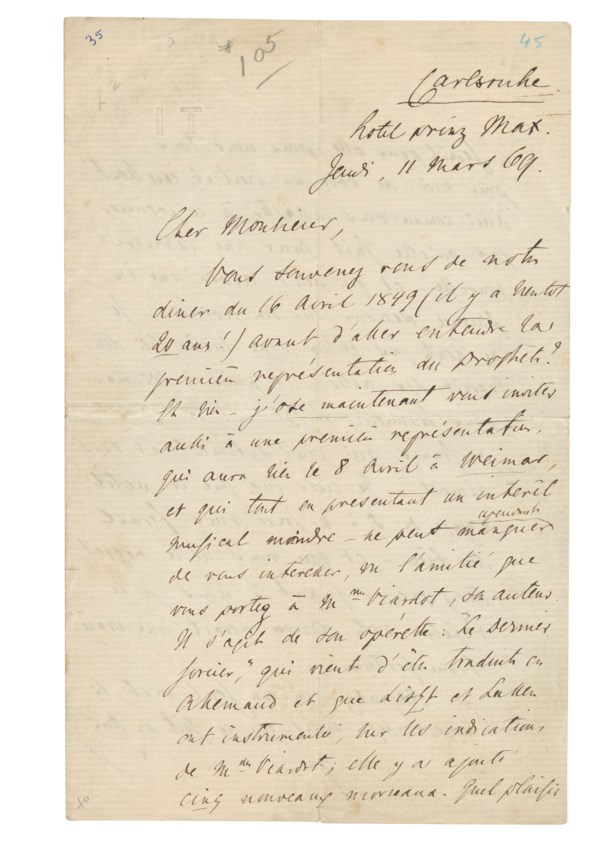 35
45
* 105
IT
Carlsruhe.
hotel prinz Max.
Jeudi, 11 Mars 69.
Cher Monsieur,
Vous souvenez vous de notre
diner du 16 Avril 1849 (il y a bientot
20 ans!) avant d'aller entendre la
première représentation du Prophète?
Eh bien – j'ose maintenant vous inviter
aussi à une première représentation,
qui aura lieu le 8 Avril à Weimar,
et qui tout en présentant un intérêt
musical moindre – ne peut cependant manquer
de vous intéresser, vu l'amitié que
vous portez à Mme Viardot, son auteur.
Il s'agit de son opérette: "Le Dernier
Sorcier," qui vient d'être traduite en
Allemand et que Liszt et Lassen
ont instrumentée, sur les indications
de Mme Viardot; elle y a ajouté
cinq nouveaux morceaux. Quel plaisir